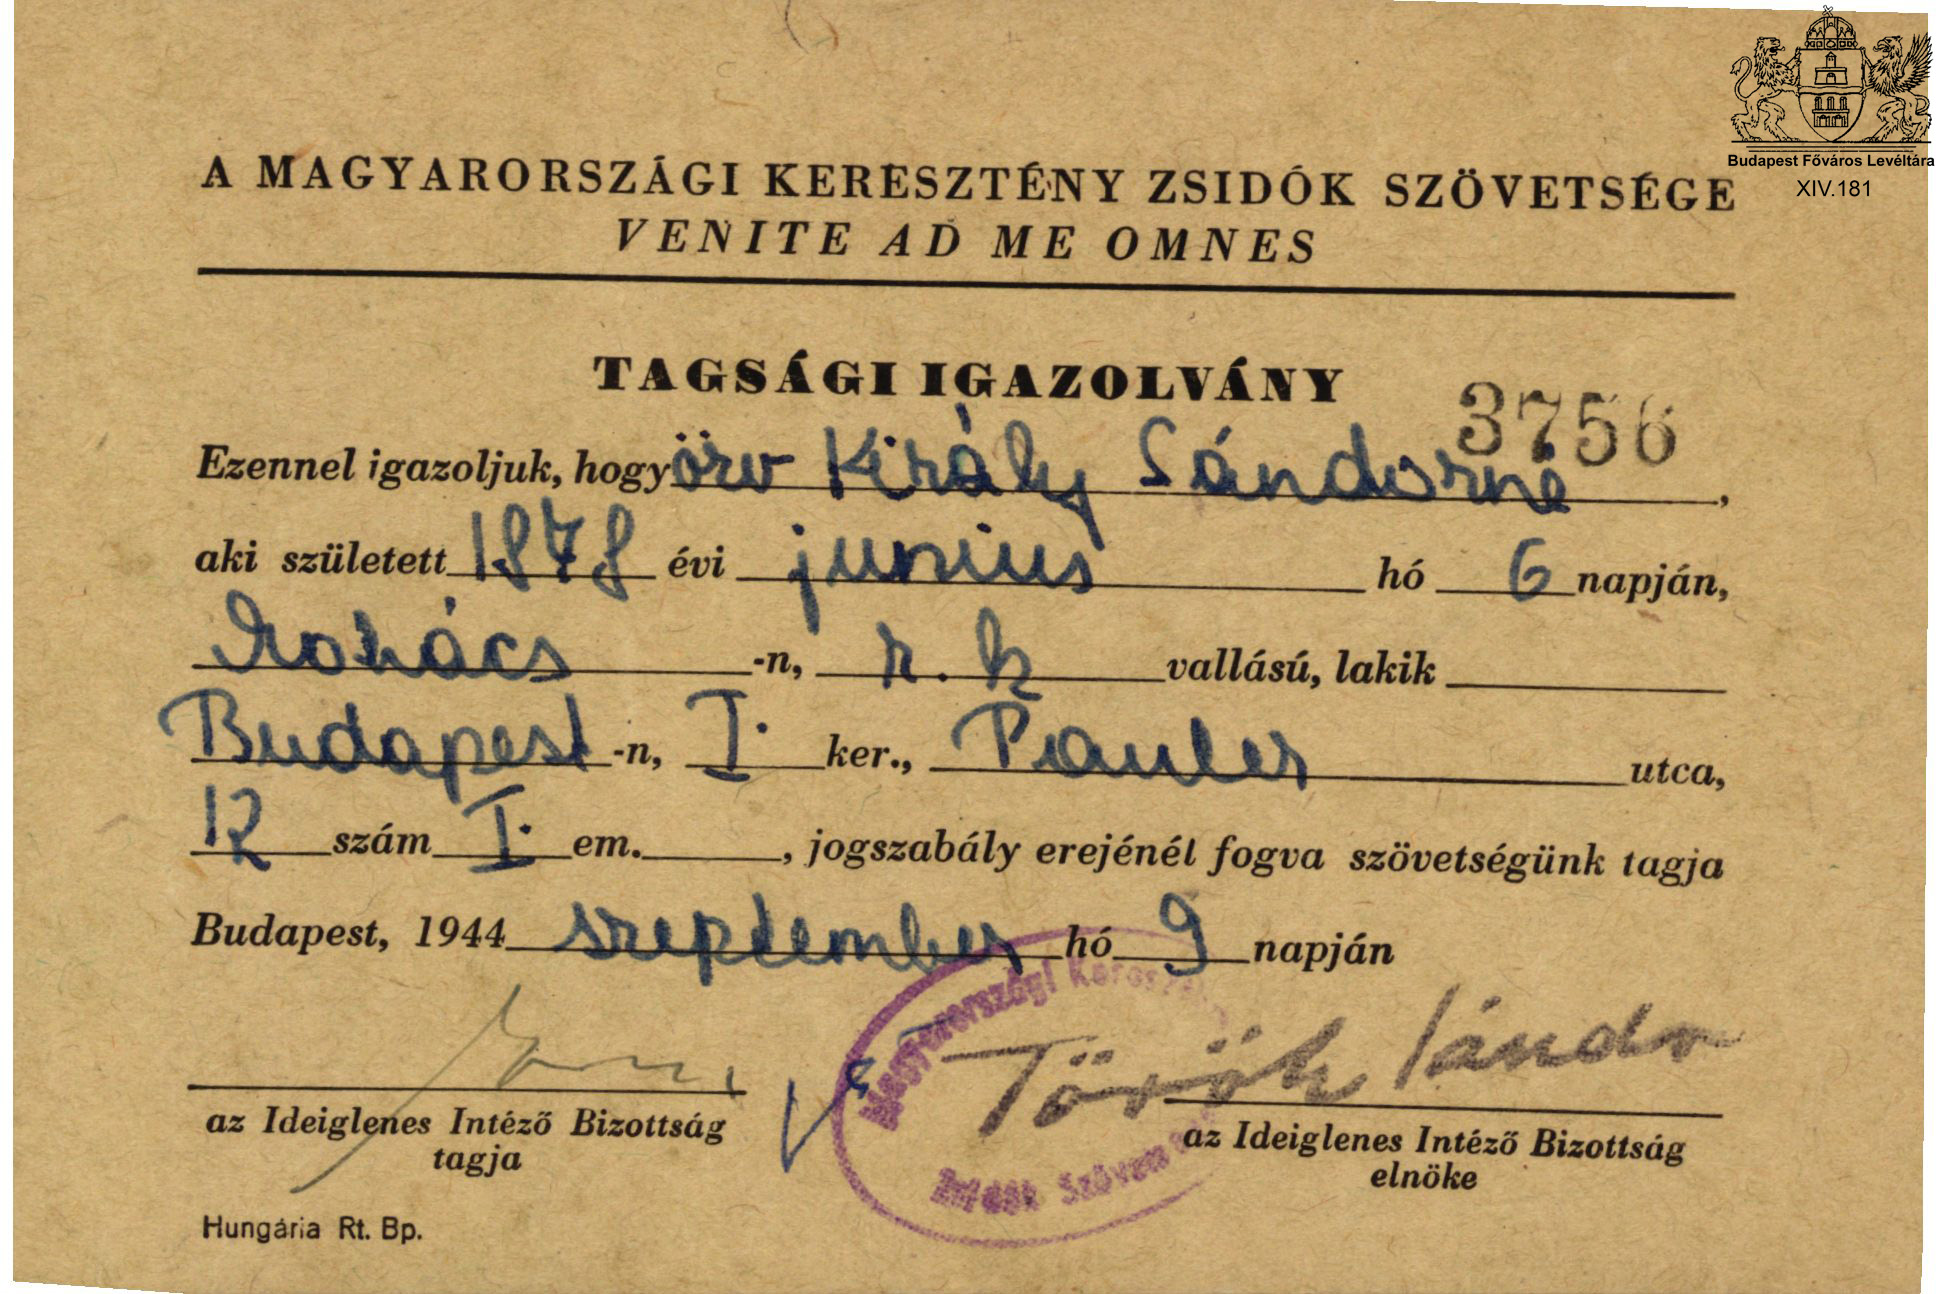 Budapest Főváros Levéltára
XIV.181
A MAGYARORSZÁGI KERESZTÉNY ZSIDÓK SZÖVETSÉGE
VENITE AD ME OMNES
TAGSÁGI IGAZOLVÁNY
3756
Ezennel igazoljuk, hogy özv Király Sándorné,
aki született 1878 évi junius hó 6 napján,
Mohács -n, r. k vallású, lakik
Budapest -n, I. ker., Pauler utca,
12 szám I. em. , jogszabály erejénél fogva szövetségünk tagja
Budapest, 1944 szeptember hó 9 napján
Magyarországi Keresz
Török Sándor
az Ideiglenes Intéző Bizottság
tagja
az Ideiglenes Intéző Bizottság
elnöke
Zsidók Szövet
Hungária Rt. Bp.